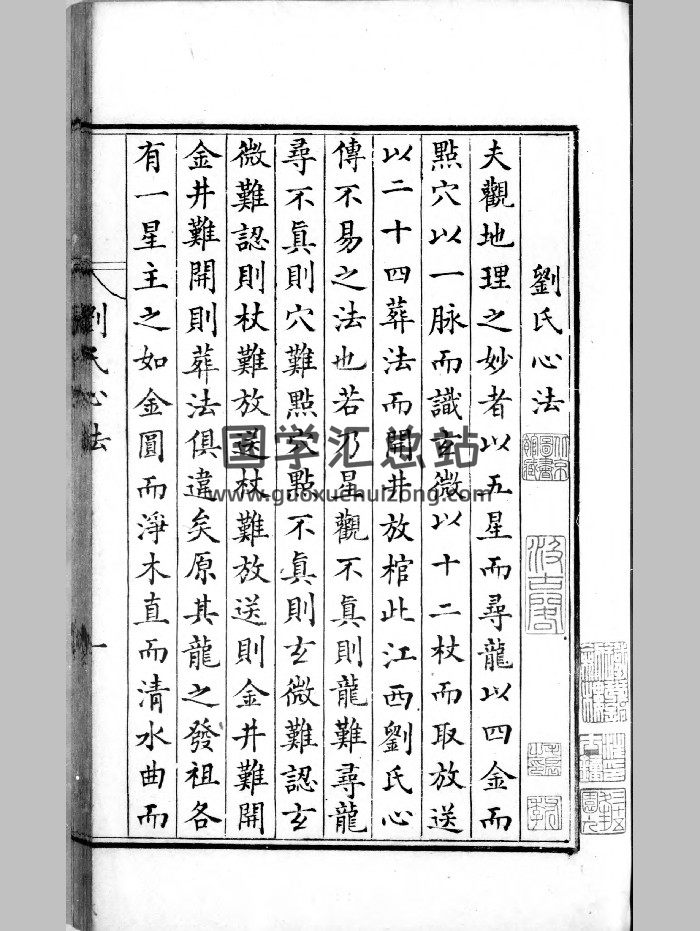 劉氏心法
夫觀地理之妙者以五星而尋龍以四金而
點穴以一脉而識玄微以十二杖而取放送
以二十四葬法而開井放棺此江西劉氏心
傳不易之法也若乃星觀不眞則龍難尋龍
尋不眞則穴難點穴點不眞則玄微難認玄
微難認則杖難放送杖難放送則金井難開
金井難開則葬法俱違矣原其龍之發祖各
有一星主之如金圓而淨木直而清水曲而
劉氏心法
一
国学汇总站
www.guoxuehuizong.com